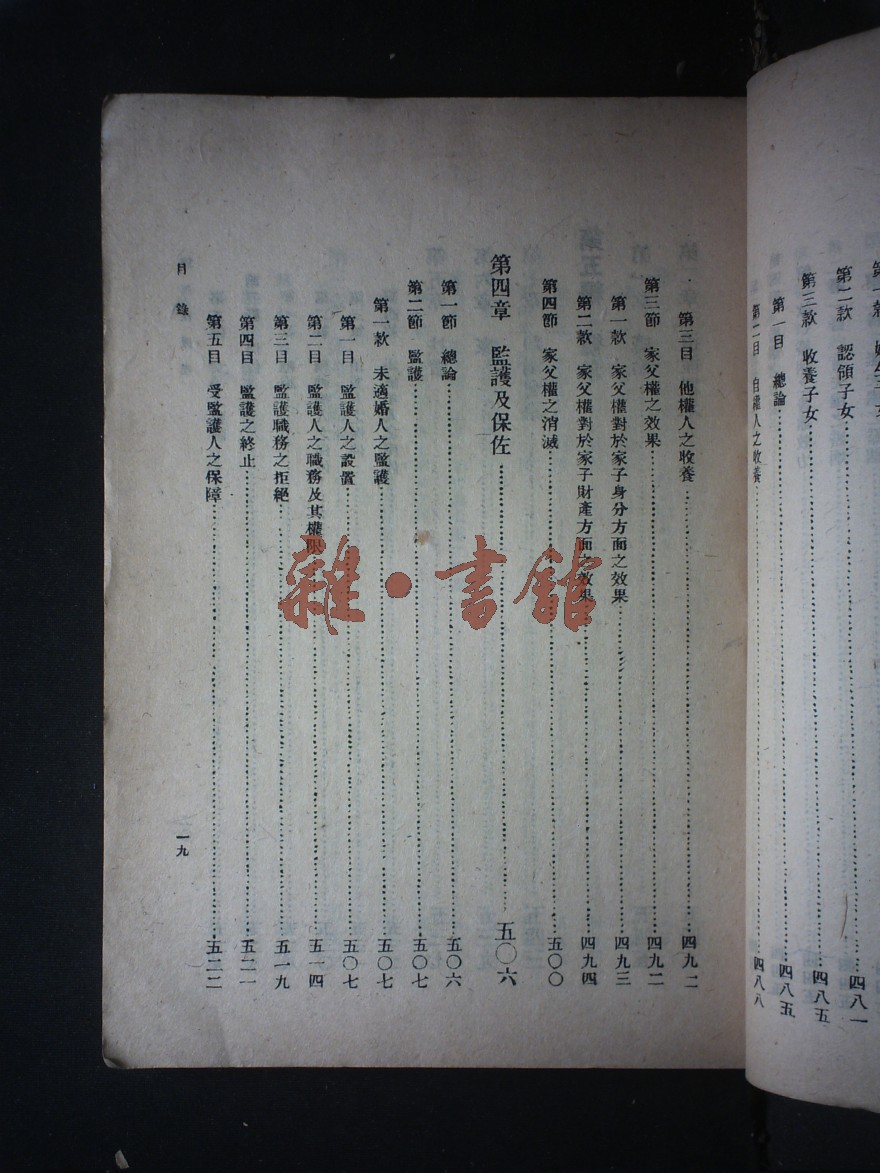 第二款　認領子女…………四八一
第三款　收養子女…………四八五
第一目　總論…………四八五
第二目　自權人之收養…………四八八
第三目　他權人之收養…………四九二
第三節　家父權之效果…………四九二
第一款　家父權對於家子身分方面之效果…………四九三
第二款　家父權對於家子財產方面之效果…………四九四
第四節　家父權之消滅…………五〇〇
第四章　監護及保佐…………五〇六
第一節　總論…………五〇六
第二節　監護…………五〇七
第一款　未適婚人之監護…………五〇七
第一目　監護人之設置…………五〇七
第二目　監護人之職務及其權限…………五一四
第三目　監護職務之拒絕…………五一九
第四目　監護之終止…………五二一
第五目　受監護人之保障…………五二二
目錄
一九
雜·書館